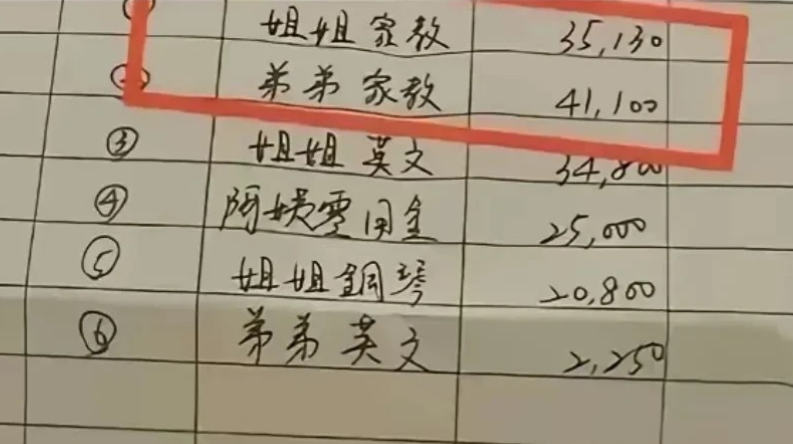 ① 姐姐家教 35,130
② 弟弟家教 41,100
③ 姐姐英文 34,800
④ 阿姨零用金 25,000
⑤ 姐姐鋼琴 20,800
⑥ 弟弟英文 2,250